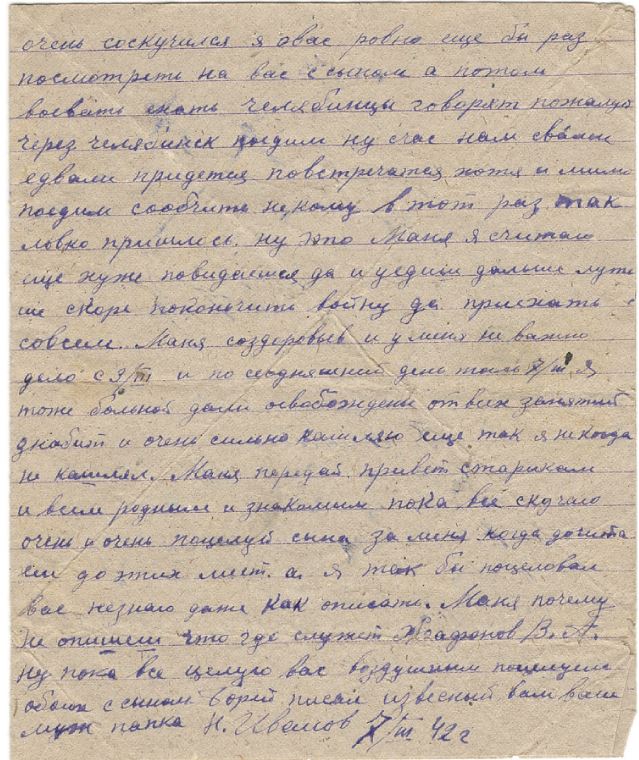 очень соскучился я о вас ровно еще бы раз
посмотреть на вас с сыном а потом
воевать ехать челябинцы говорят пожалуй
через челябинск поедим ну счас нам с вами
едвали придется повстречатся хотя и мимо
поедим сообчить некому в тот раз так
ловко пришлось. ну это Маня я считаю
еще хуже повидаешся да и уедиш дальше лутч
ше скоре покончить войну да приехать
совсем. Маня со здоровьем и у меня не важно
дело с 3/III и по сегодняшний день тоесть 7/III я
тоже больной дали освобождение от всех занятий
знабит и очень сильно кашляю еще так я некогда
не кашлял. Маня передай привет старикам
и всем родным и знакомым пока все скучаю
очень и очень поцелуй сына за меня когда дочита
еш до этих мест. а я так бы поцеловал
вас незнаю даже как описать. Маня почему
не опишеш что где служит Агафонов В. А.
ну пока все целую вас воздушным поцелуем
обоих с сыном Борей писал извесный вам ваш
муж папка Н. Иванов 7/III 42 г